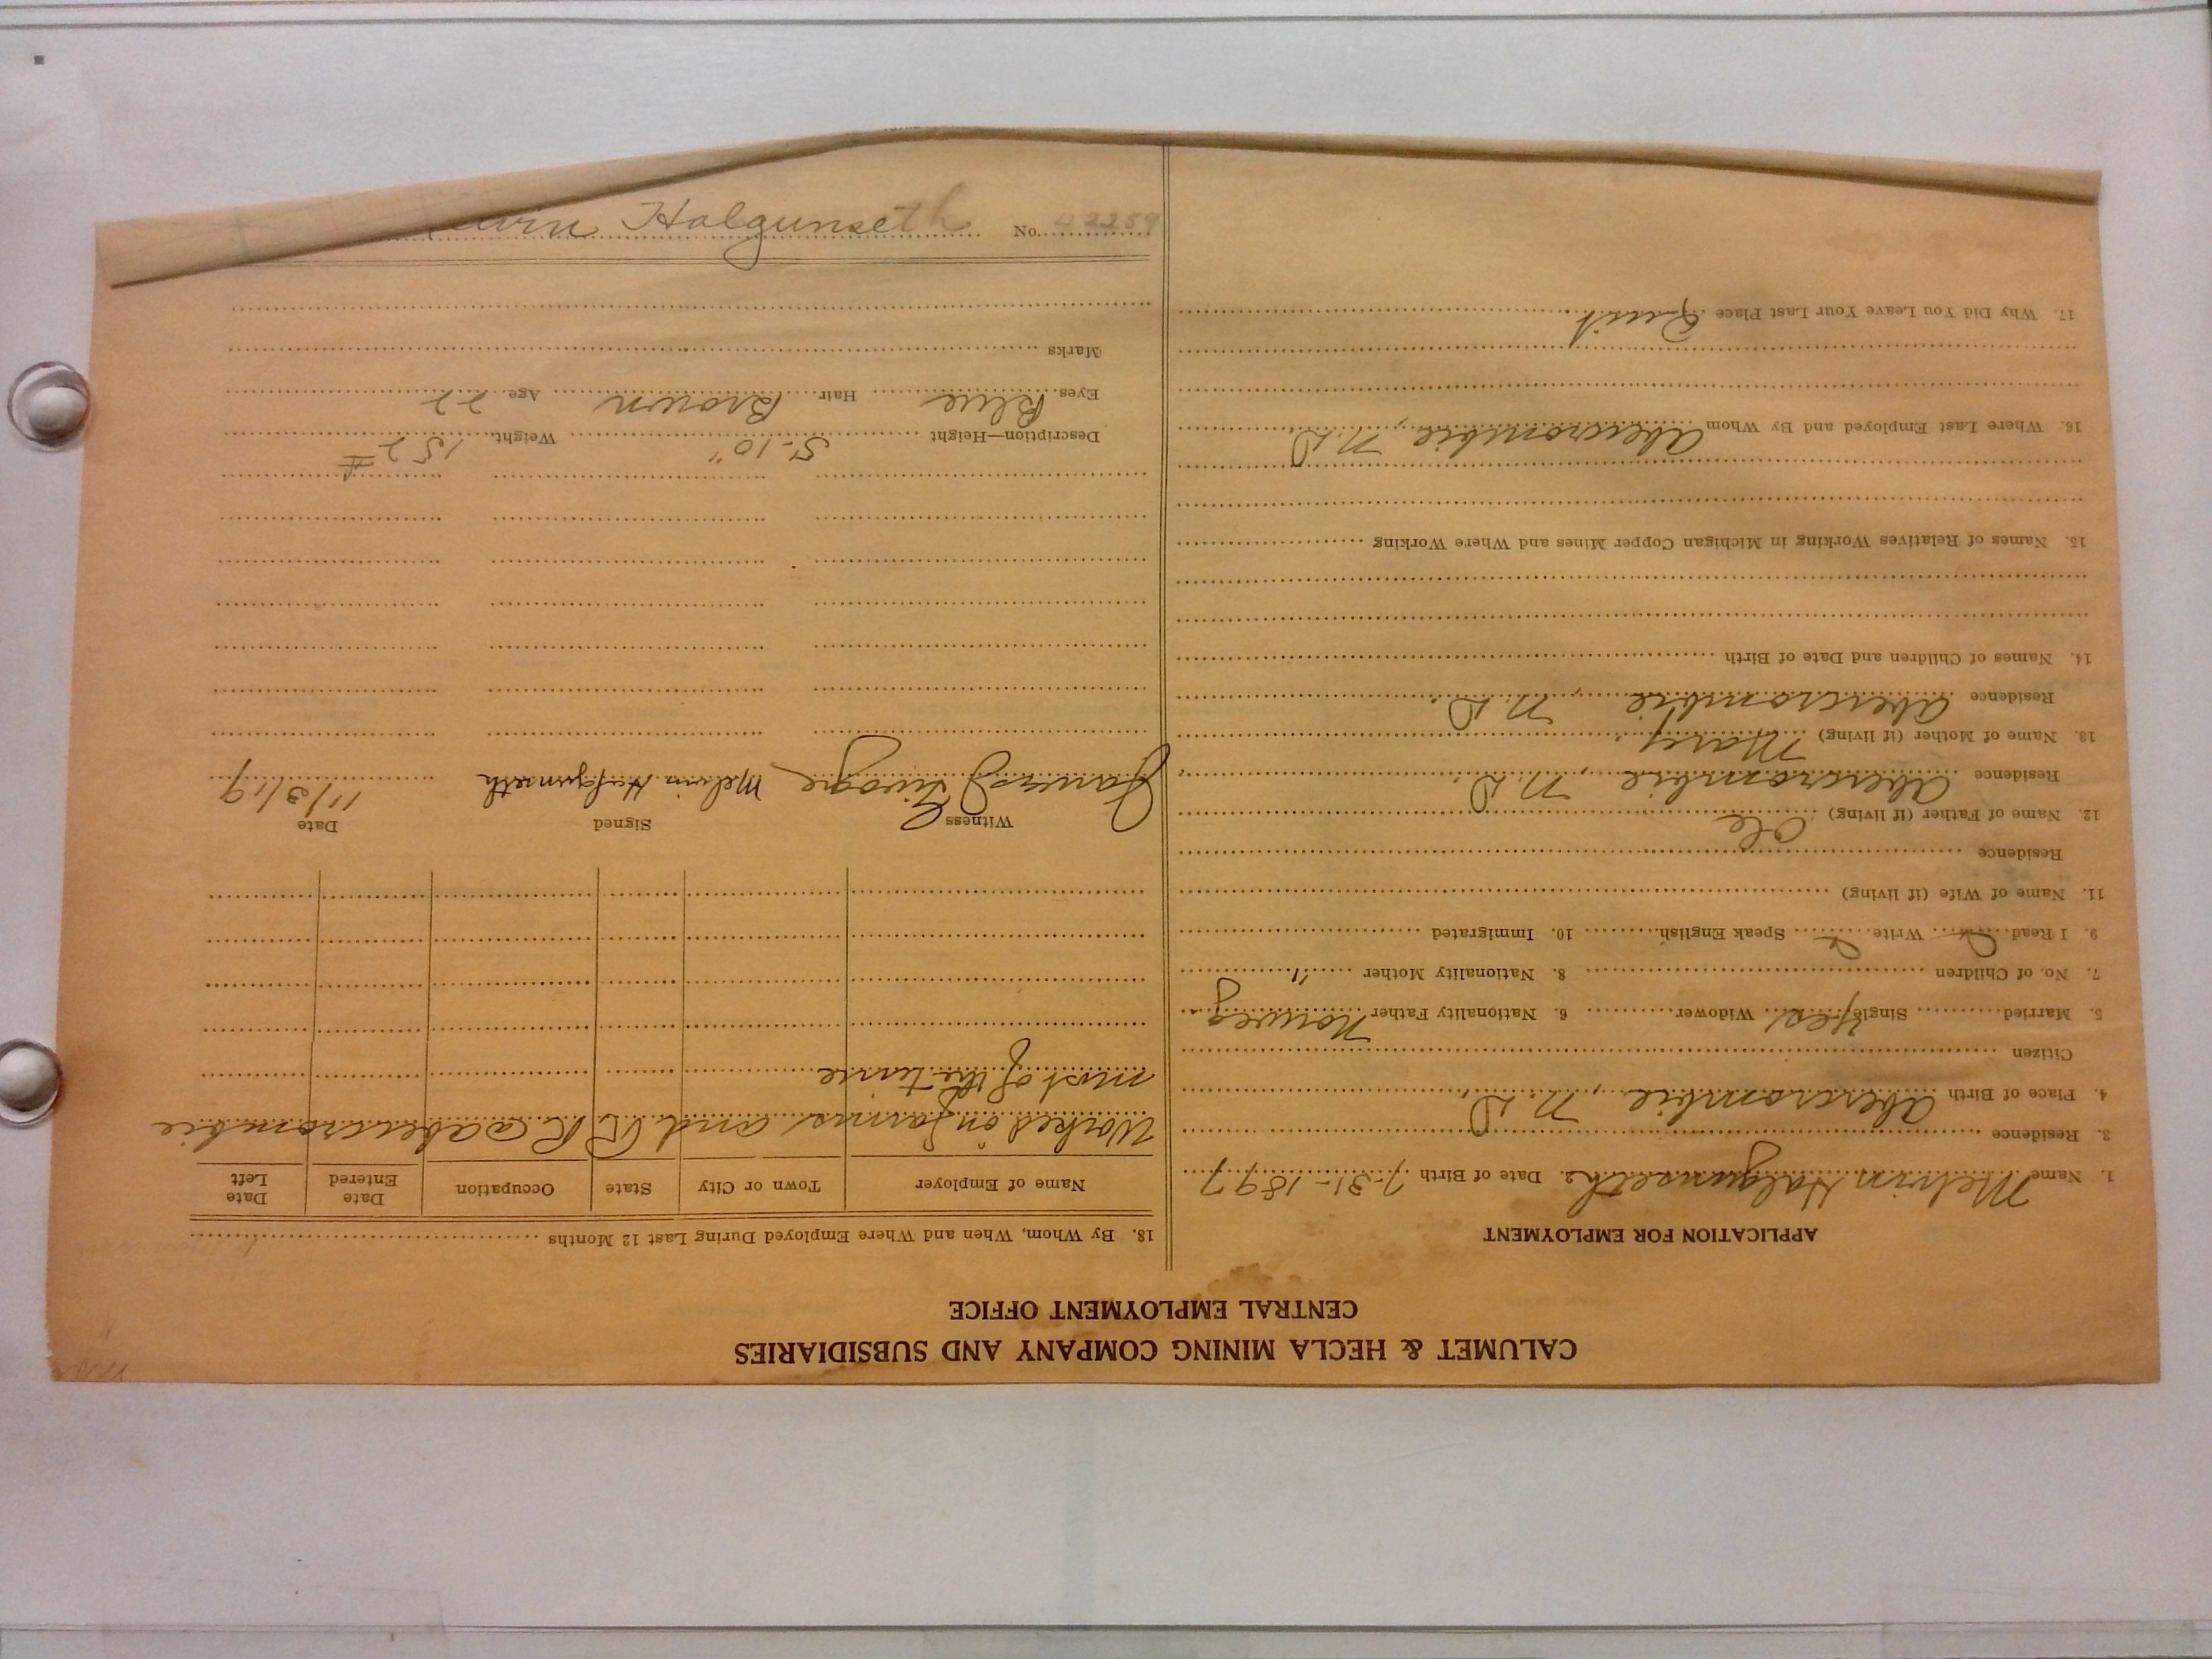 CALUMET & HECLA MINING COMPANY AND SUBSIDIARIES
CENTRAL EMPLOYMENT OFFICE
APPLICATION FOR EMPLOYMENT
1. Name Melvin Halgunseth 2. Date of Birth 7-31-1897
3. Residence
4. Place of Birth Abercrombie, N.D.
Citizen
5. Married Single yes Widower 6. Nationality Father Norweg
7. No. of Children 8. Nationality Mother "
9. I Read Write Speak English 10. Immigrated
11. Name of Wife (if living)
Residence
12. Name of Father (if living) Ole
Residence Abercrombie, N.D.
13. Name of Mother (if living) Mary
Residence Abercrombie, N.D.
14. Names of Children and Date of Birth
15. Names of Relatives Working in Michigan Copper Mines and Where Working
16. Where Last Employed and By Whom Abercrombie, N.D
17. Why Did You Leave Your Last Place Quit
18. By Whom, When and Where Employed During Last 12 Months
Name of Employer Town or City State Occupation Date Entered Date Left
Worked on farms and R.R. @ Abercrombie
most of the time
Witness Signed Date
James Melvin Halgunseth 11/3/19
Description—Height 5'-10" Weight 152 #
Eyes Blue Hair Brown Age 22
Marks
Halgunseth No. 42259